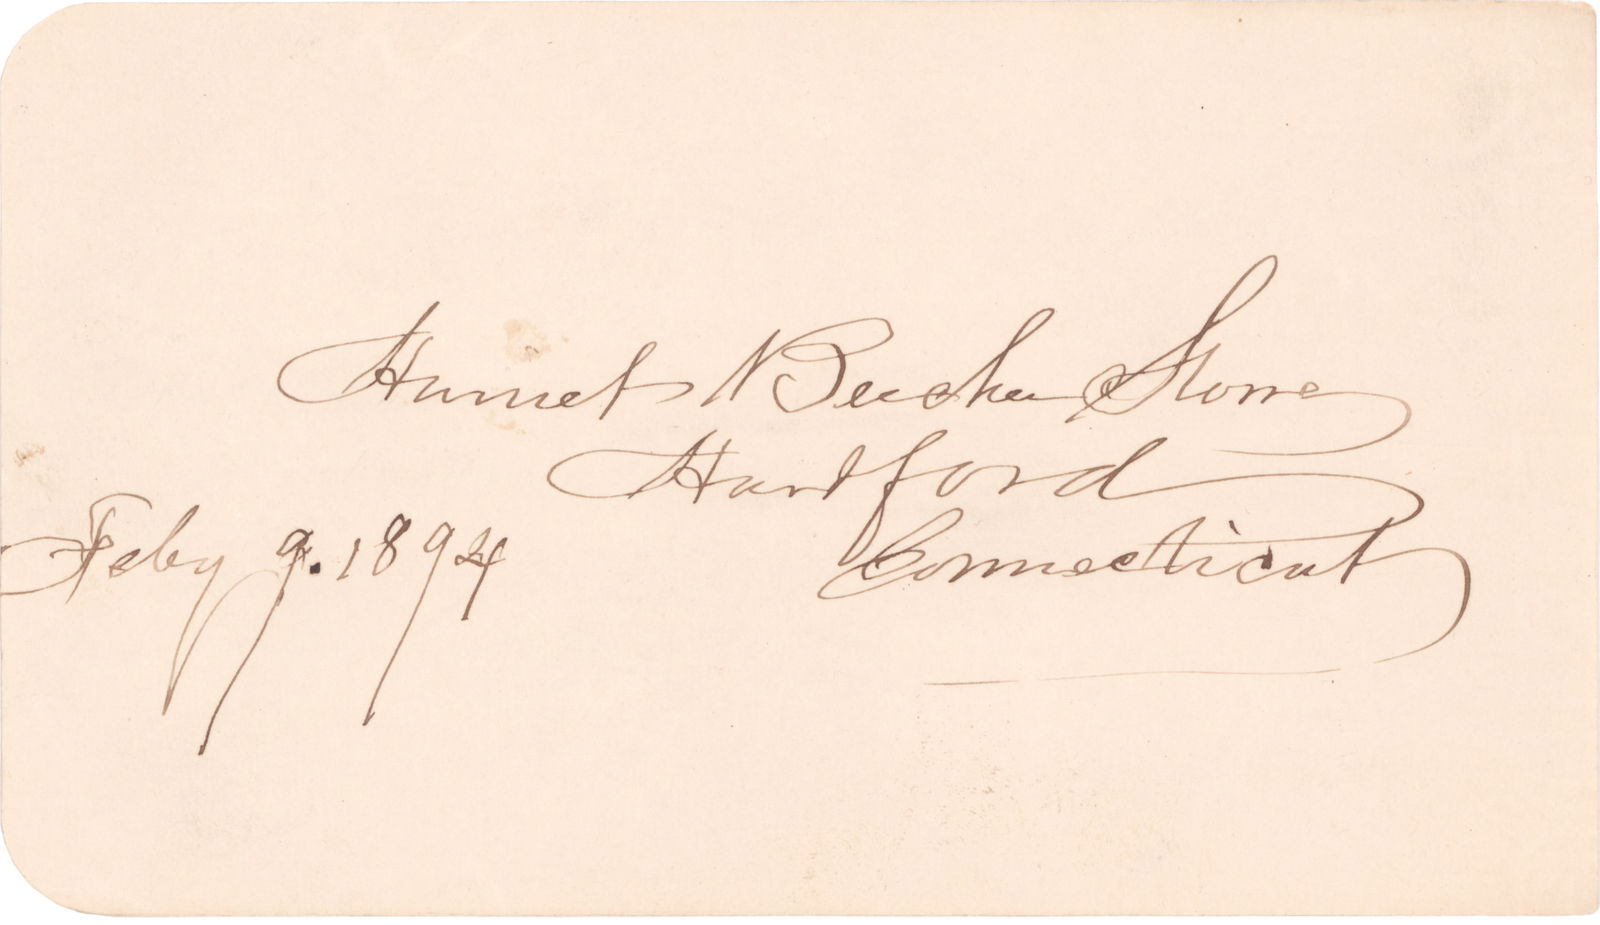 Harriet Beecher Stowe
Hartford
Connecticut
Feby 9. 1894